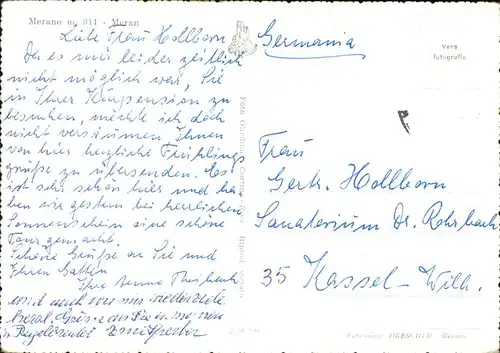 Merano m. 311 - Meran
Liebe Frau Hollborn
Da es mir leider zeitlich
nicht möglich war, Sie
in Ihrer Kurpension zu
besuchen, möchte ich doch
nicht versäumen, Ihnen
von hier herzliche Frühlings
grüße zu übersenden. Es
ist sehr schön hier und ha-
ben wir gestern bei herrlichen
Sonnenschein eine schöne
Tour gemacht.
Schöne Grüße an Sie und
Ihren Gatten
Ihre
und auch von mir
Germania
Vera
fotografia
Frau
Gertr. Hollborn
Sanatorium Dr. Rohrbach
35 Kassel-Wilh.